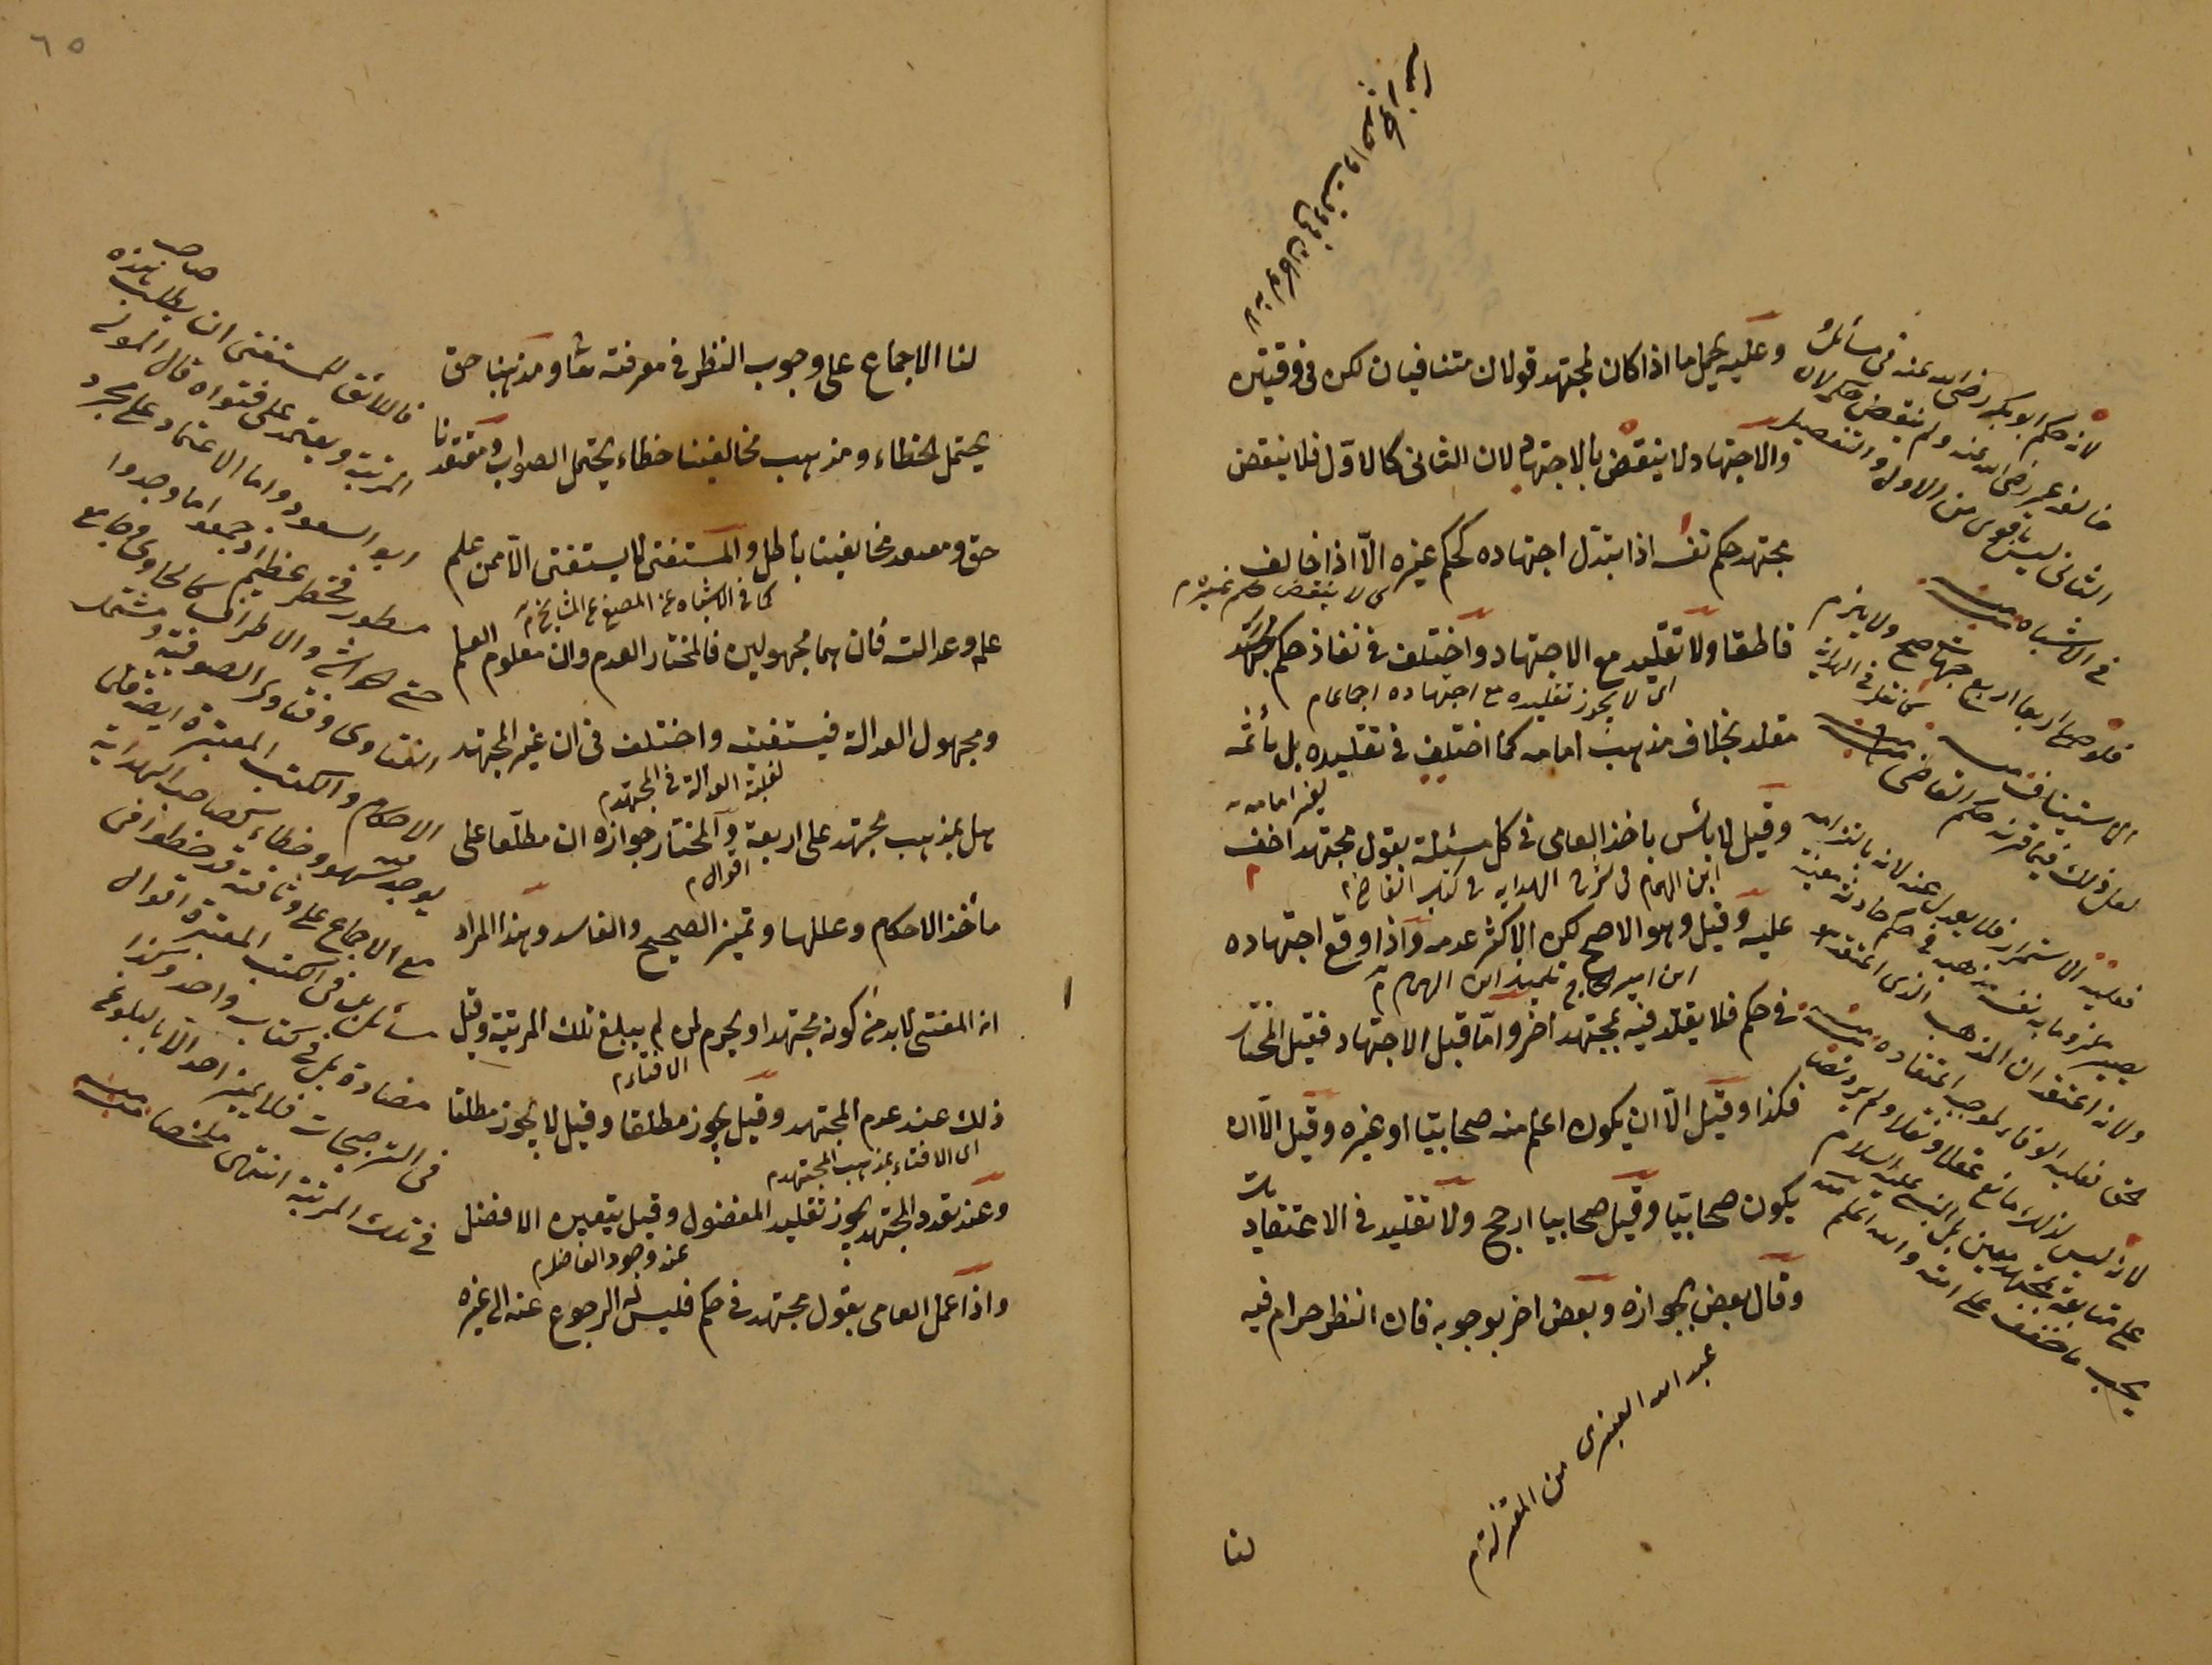 وعليه يحمل ما اذا كان لمجتهد قولان متنافيان لكن فى وقتين
والاجتهاد لا ينقض بالاجتهاد لان الثانى كالاول فلا ينقض
مجتهد حكم نفسه اذا تبدل اجتهاده كحكم غيره الّا اذا خالف
اى لا ينقض حكم غيره م
قاطعا ولا تقليد مع الاجتهاد واختلف فى نفاذ حكم
اى لا يجوز تقليده مع اجتهاده اجماعا م
مقلد بخلاف مذهب امامه كما اختلف فى تقليده بل يأثمه
لغير امامه
وقيل لا بأس باخذ العامى فى كل مسئلة بقول مجتهد اخف
ابن الهمام فى شرح الهداية فى كتاب القاضى م
عليه وقيل وهو الاصح لكن الاكثر عدمه واذا وقع اجتهاده
ابن امير الحاج تلميذ ابن الهمام
فى حكم فلا يقلد فيه لمجتهد اخر وامّا قبل الاجتهاد فقيل المختار
فكذا وقيل الّا ان يكون اعلم منه صحابيّا او غيره وقيل الّا ان
يكون صحابيّا وقيل صحابيا ارجح ولا تقليد فى الاعتقاديات
وقال بعض بجوازه وبعض اخر بوجوبه فان النظر حرام فيه
عبد الله العنبرى من المعتزلة م
لنا
لانه حكم ابو بكر رضى الله عنه فى مسائل
خالفه عمر رضى الله عنه ولم ينقض حكمه لان
الثانى ليس باقوى من الاول والتفصيل
فى الاشباه منه
فلو صلى اربعا اربع جهات صح ولا يلزم
الاستيناف منه
كما نقل فى الهداية
لعل ذلك فيما قرنه حكم القاضى منه
فعليه الاستمرار فلا يعدل عنه لانه بالتزامه
يصير ملزوما به نفسه مذهبه فى حكم حادثة معينة
ولانه اعتقد ان المذهب الذى اعتقد هو
الحق فعليه الوفاء بموجب اعتقاده منه
لانه ليس لذلك مانع عقلا ونقلا ولم يرد نص
على متابعة مجتهد معين بل النبى عليه السلام
يحب ما خفف على امته والله اعلم منه
٦٥
لنا الاجماع على وجوب النظر فى معرفته تعالى ومذهبنا حق
يحتمل الخطاء ومذهب مخالفينا خطاء يحتمل الصواب ومعتقدنا
حق ومعتقد مخالفينا باطل والمستفتى لا يستفتى الّا من علم
كما فى الاشباه عن المصفى عن المشايخ
علمه وعدالته فان هما مجهولين فالمختار العدم وان معلوم العلم
ومجهول العدالة فيستفتيه واختلف فى ان غير المجتهد
لغلبة العدالة فى المجتهد م
هل بمذهب مجتهد على اربعة والمختار جوازه ان مطلعا على
اقوال م
مأخذ الاحكام وعللها وتميز الصحيح والفاسد وهذا المراد
ان المفتى لا بد من كونه مجتهدا ويحرم لمن لم يبلغ تلك المرتبة وقيل
الافتاء م
ذلك عند عدم المجتهد وقيل يجوز مطلقا وقيل لا يجوز مطلقا
اى الافتاء بمذهب المجتهد م
وعند تعدد المجتهد يجوز تقليد المفضول وقيل يتعين الافضل
عند وجود الفاضل م
واذا عمل العامى بقول مجتهد فى حكم فليس له الرجوع عنه الى غيره
فاللائق للمستفتى ان يطلب صاحب هذه
المرتبة ويعتمد على فتواه قال المولى
ابو السعود واما الاعتماد على مجرد
مسطور فخطر عظيم اذ جمعوا ما وجدوا
حتى حواشى والاطراف كالحاوى وجامع
الفتاوى وفتاوى الصوفية ومشتمل
الاحكام والكتب المعتبرة ايضا قلما
يوجد منه سهو وخطاء كصاحب الهداية
مع الاجماع على وثاقته قد خطوا فى
مسائل بل فى الكتب المعتبرة اقوال
مضادة بل فى كتاب واحد وكذا
فى الترجيحات فلا يميز احد الّا بالبلوغ
فى تلك المرتبة انتهى ملخصا منه